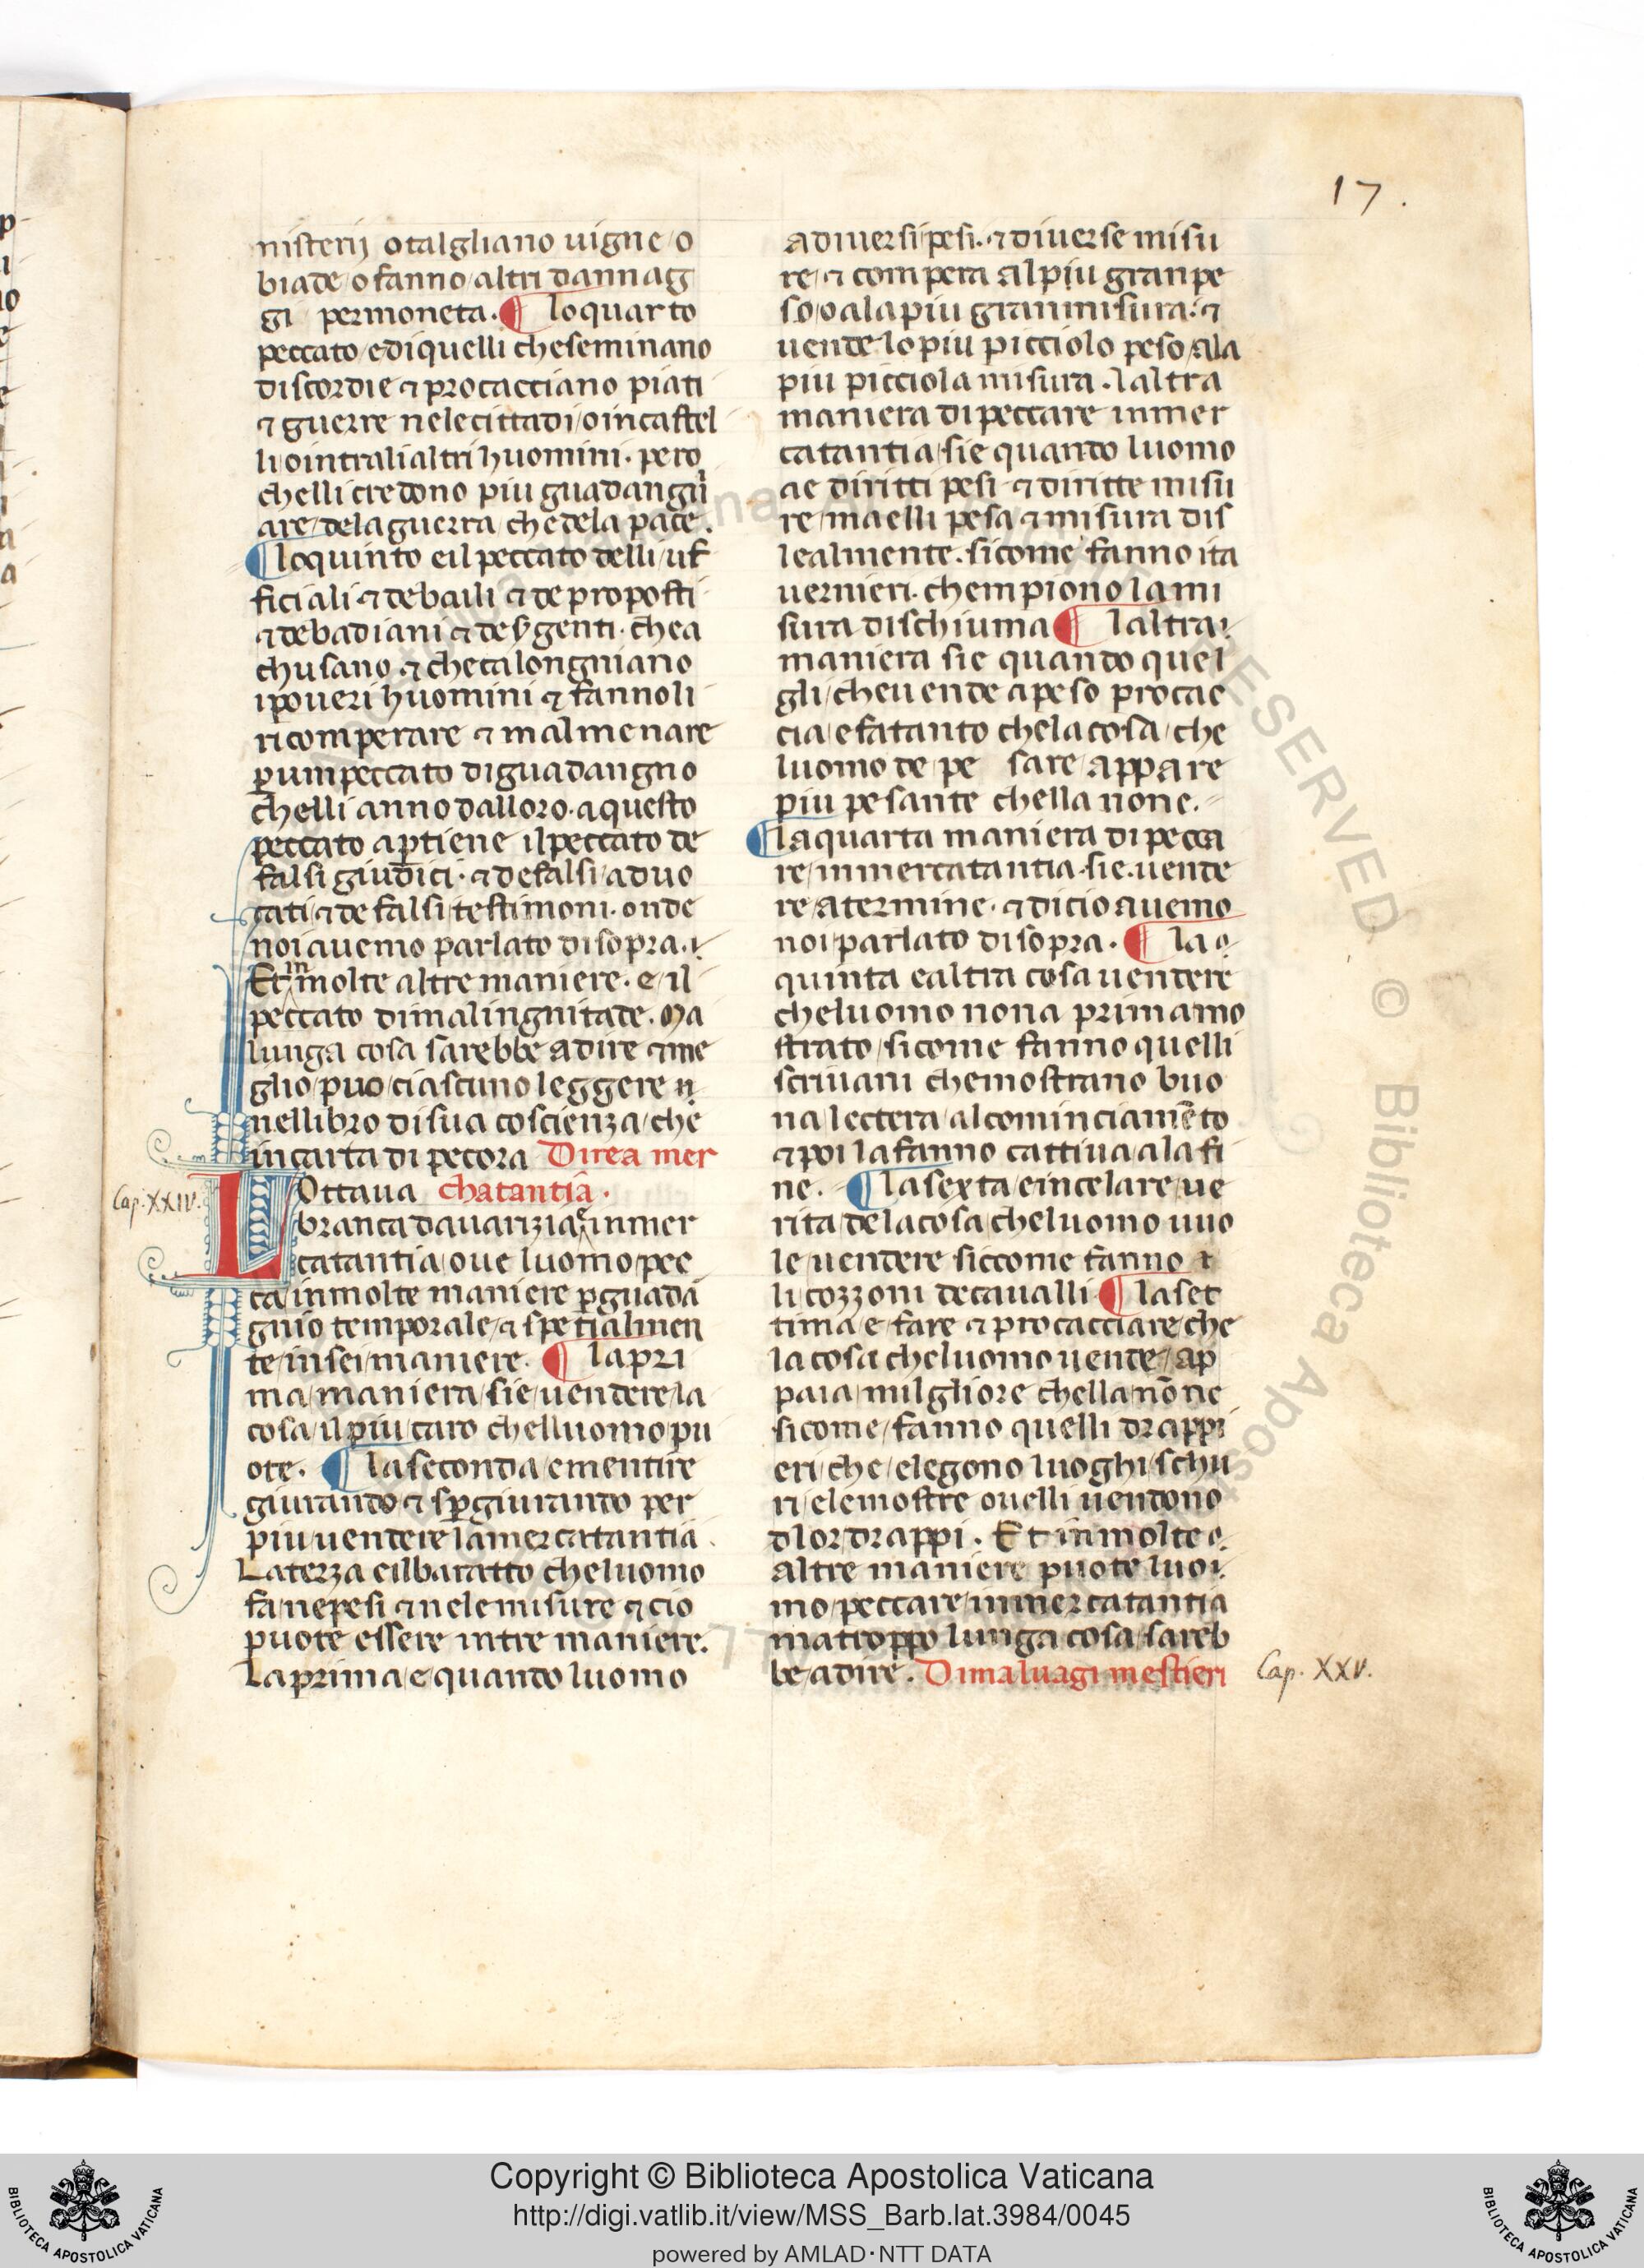 17.
nisterij otalgliano uigne/o
biade/o fanno/altri dannag
gi permoneta. ¶ loquarto
peccato/ediquelli cheseminano
discordie ⁊ procacciano piati
⁊ guerre nelecittadi/oincastel
li/ointralialtri huomini. pero
chelli credono piu guadangni
are/delaguerra chedela pace.
¶ loquinto eilpeccato delli/uf
ficiali ⁊ debaili ⁊ de proposti
⁊ debadiani ⁊ de sgenti. chea
chusano ⁊ checalongniano
ipoueri huomini ⁊ fannoli
ricomperare ⁊ malmenare
ꝑunpeccato diguadangno
chelli anno dalloro. aquesto
peccato aꝑtiene ilpeccato de
falsi giudici. ⁊ defalsi/aduo
cati/⁊ de falsi/testimoni. onde
noi auemo parlato disopra.
Et in molte altre maniere. e/il
peccato dimalingnitade. Ma
lunga cosa sarebbe adire ⁊ me
glio/puo/ciascuno leggere n
nellibro disua coscienza/che
incarta di pecora Direa mer
Cap. XXIV. LOttaua chatantia.
branca dauarizia e inmer
catantia/oue luomo/pec
ca/inmolte maniere ꝑguada
gnio temporale/⁊ spetialmen
te/insei/maniere. ¶ lapri
ma/maniera/sie/uendere/la
cosa/ilpiu/caro chelluomo/pu
ote. ¶ laseconda/ementire
giurando ⁊ sꝑgiurando per
piu/uendere lamercatantia.
Laterza eilbaratto cheluomo
fa/nepesi ⁊ nelemisure ⁊ cio
puote essere intre maniere.
Laprima/e quando luomo
adiuersi/pesi. ⁊ diuerse misu
re/⁊ compera alpiu granpe
so/o alapiu granmisura. ⁊
uende lopiu picciolo peso/ala
piu picciola misura. laltra
maniera dipeccare inmer
catantia/sie quando luomo
ae diritti pesi ⁊ diritte misu
re/maelli pesa ⁊ misura dis
lealmente. sicome fanno ita
uernieri. chempiono lami
sura dischiuma ¶ laltra
maniera sie quando quel
gli/cheuende apeso procac
cia/efatanto chelacosa/che
luomo de pe sare/appare
piu pesante chella none.
¶ laquarta maniera dipecca
re/inmercatantia.sie.uende
re/atermine. ⁊ dicio auemo
noi parlato disopra. ¶ la
quinta ealtra cosa uendere
cheluomo nona primamo
strato/sicome fanno quelli
scriuani chemostrano buo
na/lectera/alcominciamēto
⁊ poi lafanno cattiua/alafi
ne. ¶ lasexta/eincelare/ue
rita/delacosa/cheluomo uuo
le uendere siccome fanno
li cozzoni decaualli ¶ laset
tima/e fare ⁊ procacciare/che
lacosa cheluomo uende/ap
paia/milgliore chella none
sicome/fanno quelli drappi
eri/che/elegono luoghi/schu
ri/elemostre ouelli uendono
dlor/drappi. Et inmolte
altre maniere puote luo
mo/peccare/inmercatantia
matroppo lunga cosa/sareb
be/adire. Dimaluagi mestieri Cap. XXV.
Copyright © Biblioteca Apostolica Vaticana
http://digi.vatlib.it/view/MSS_Barb.lat.3984/0045
powered by AMLAD·NTT DATA
BIBLIOTECA APOSTOLICA VATICANA
BIBLIOTECA APOSTOLICA VATICANA